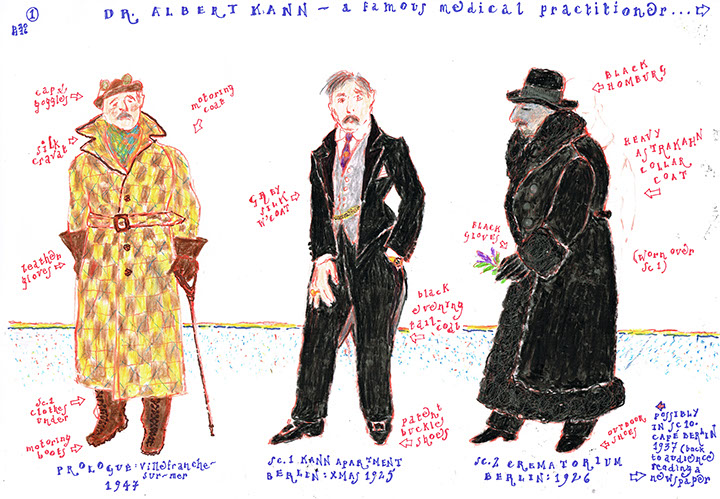 ①
DR. ALBERT KANN — a famous medical practitioner...⇨
cap &
goggles
silk
cravat
motoring
coat
leather
gloves
sc.1
clothes
under
motoring
boots
PROLOGUE: Villefranche-
sur-mer
1947
GREY
SILK
W'COAT
black
evening
tail-
coat
patent
buckle
shoes
SC.1 KANN APARTMENT
BERLIN: XMAS 1925
BLACK
HOMBURG
HEAVY
ASTRAKAHN
COLLAR
COAT
BLACK
GLOVES
(worn over
sc 1)
OUTDOOR
SHOES
SC.2 CREMATORIUM
BERLIN: 1926
POSSIBLY
IN SC 10-
CAFE BERLIN
1937 (back
to audience
reading a
newspaper